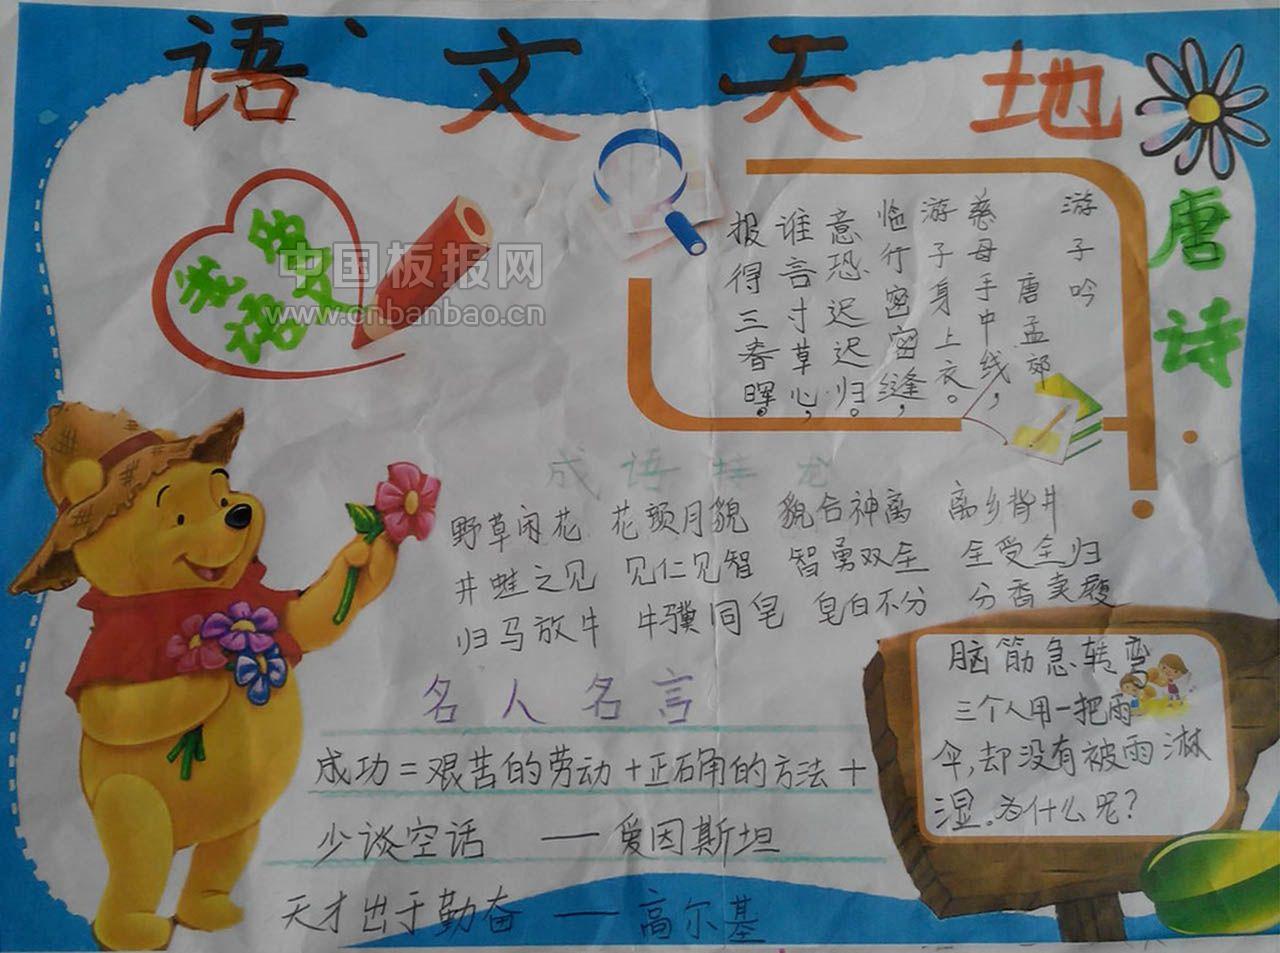 语文天地
美丽的语文
中国板报网
www.cnbanbao.cn
唐诗
游子吟
唐孟郊
慈母手中线，
游子身上衣。
临行密密缝，
意恐迟迟归。
谁言寸草心，
报得三春晖。
成语接龙
野草闲花 花颜月貌 貌合神离 离乡背井
井蛙之见 见仁见智 智勇双全 全受全归
归马放牛 牛骥同皂 皂白不分 分香卖履
名人名言
成功=艰苦的劳动+正确的方法+
少谈空话 — 爱因斯坦
天才出于勤奋 — 高尔基
脑筋急转弯
三个人用一把雨
伞，却没有被雨淋
湿。为什么呢？